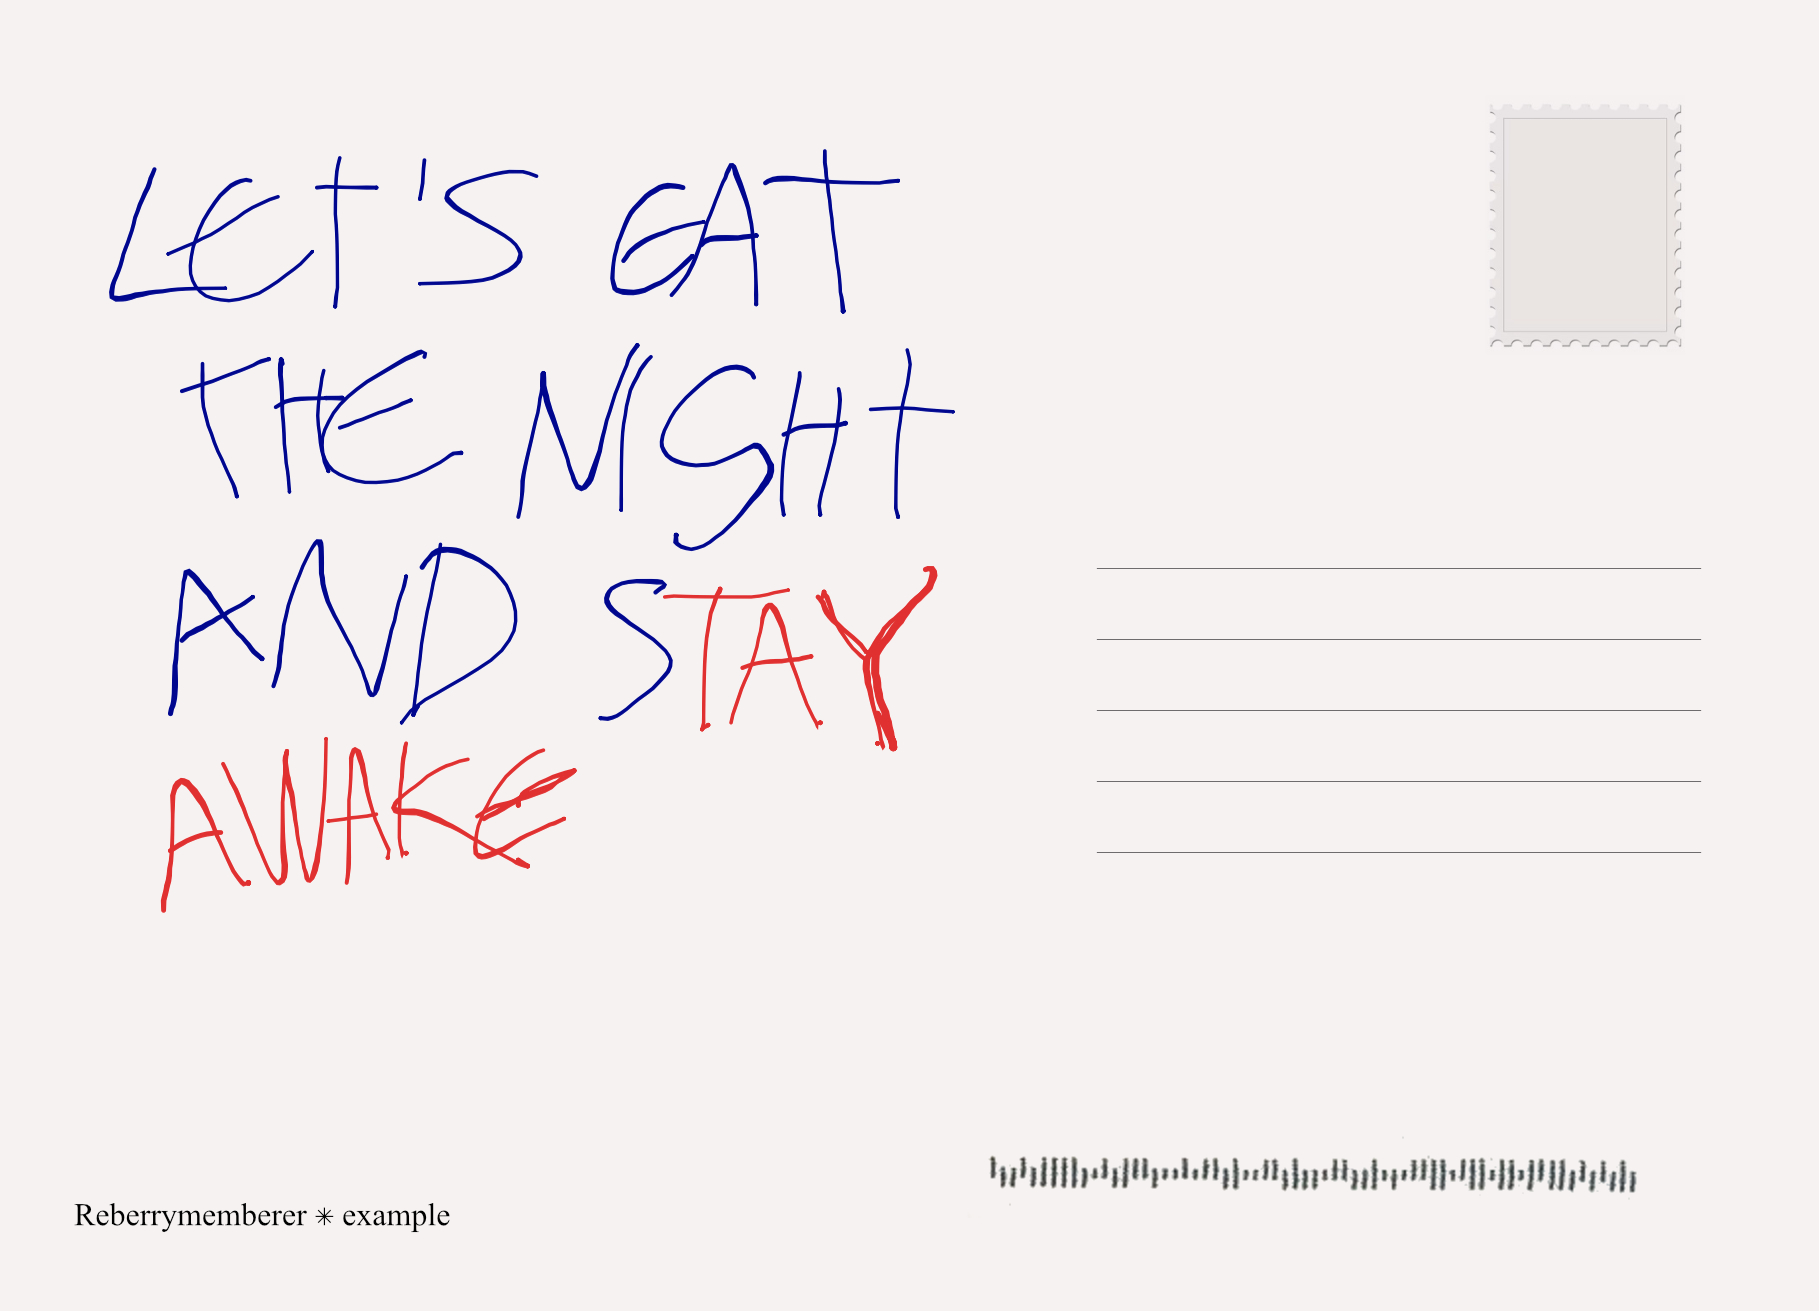 LET'S EAT
THE NIGHT
AND STAY
AWAKE
Reberrymemberer ✳ example